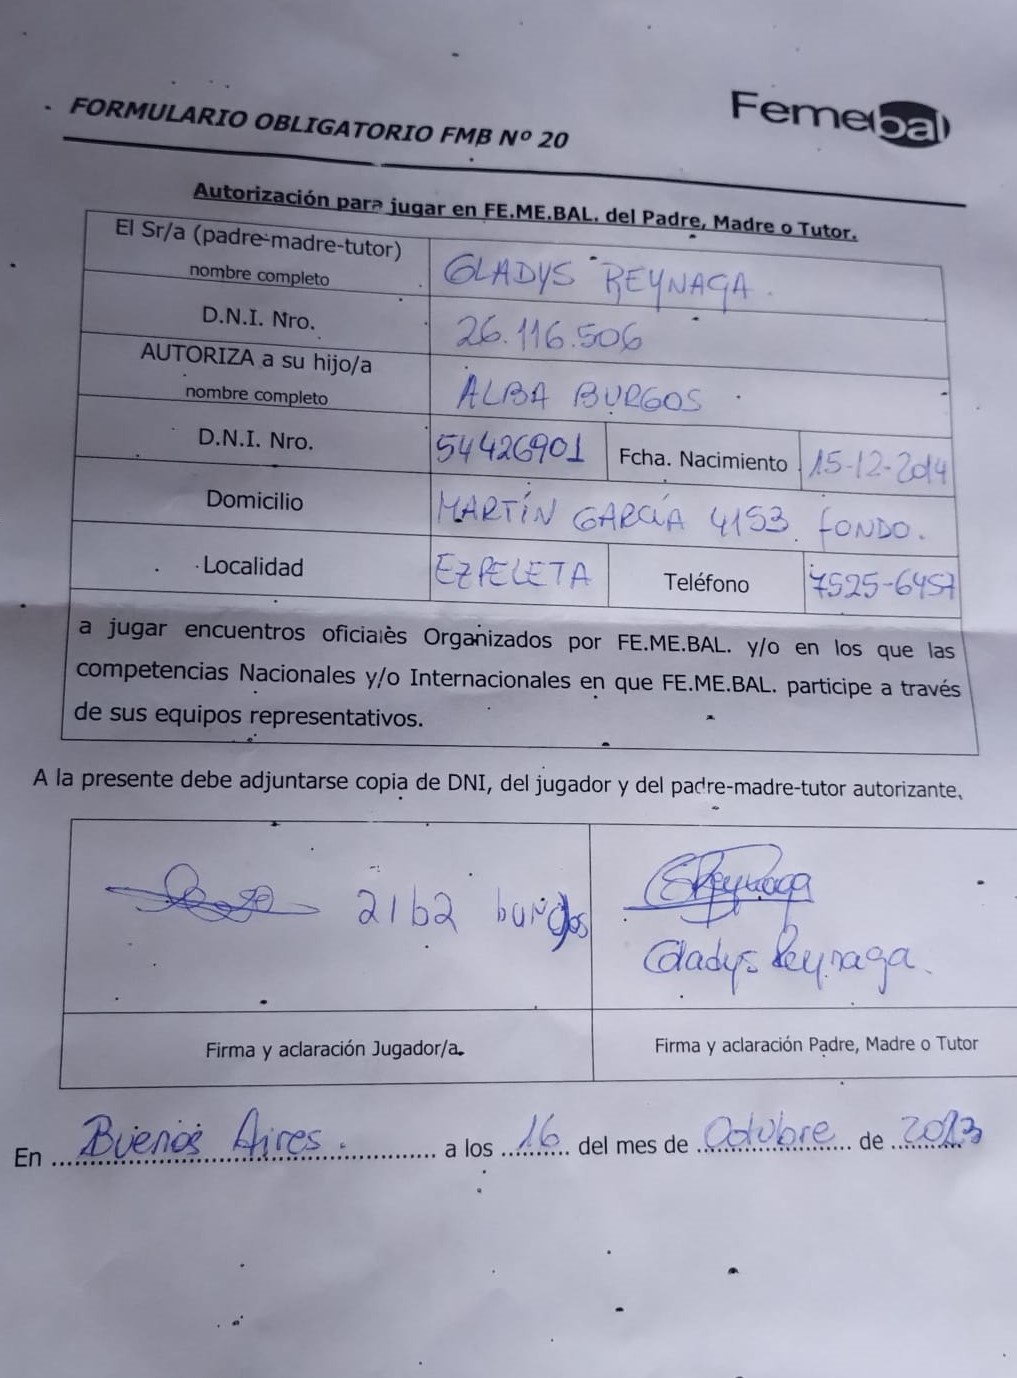 FORMULARIO OBLIGATORIO FMB Nº 20
Femebal
Autorización para jugar en FE.ME.BAL. del Padre, Madre o Tutor.
El Sr/a (padre-madre-tutor)
nombre completo
GLADYS REYNAGA.
D.N.I. Nro.
26.116.506
AUTORIZA a su hijo/a
nombre completo
ALBA BURGOS
D.N.I. Nro.
54426901
Fcha. Nacimiento
15-12-2014
Domicilio
MARTÍN GARCÍA 4153. FONDO.
Localidad
EZPELETA
Teléfono
7525-6457
a jugar encuentros oficiales Organizados por FE.ME.BAL. y/o en los que las
competencias Nacionales y/o Internacionales en que FE.ME.BAL. participe a través
de sus equipos representativos.
A la presente debe adjuntarse copia de DNI, del jugador y del padre-madre-tutor autorizante.
alba burgos
GReynaga
Gladys Reynaga.
Firma y aclaración Jugador/a.
Firma y aclaración Padre, Madre o Tutor
En Buenos Aires. a los 16 del mes de Octubre de 2023